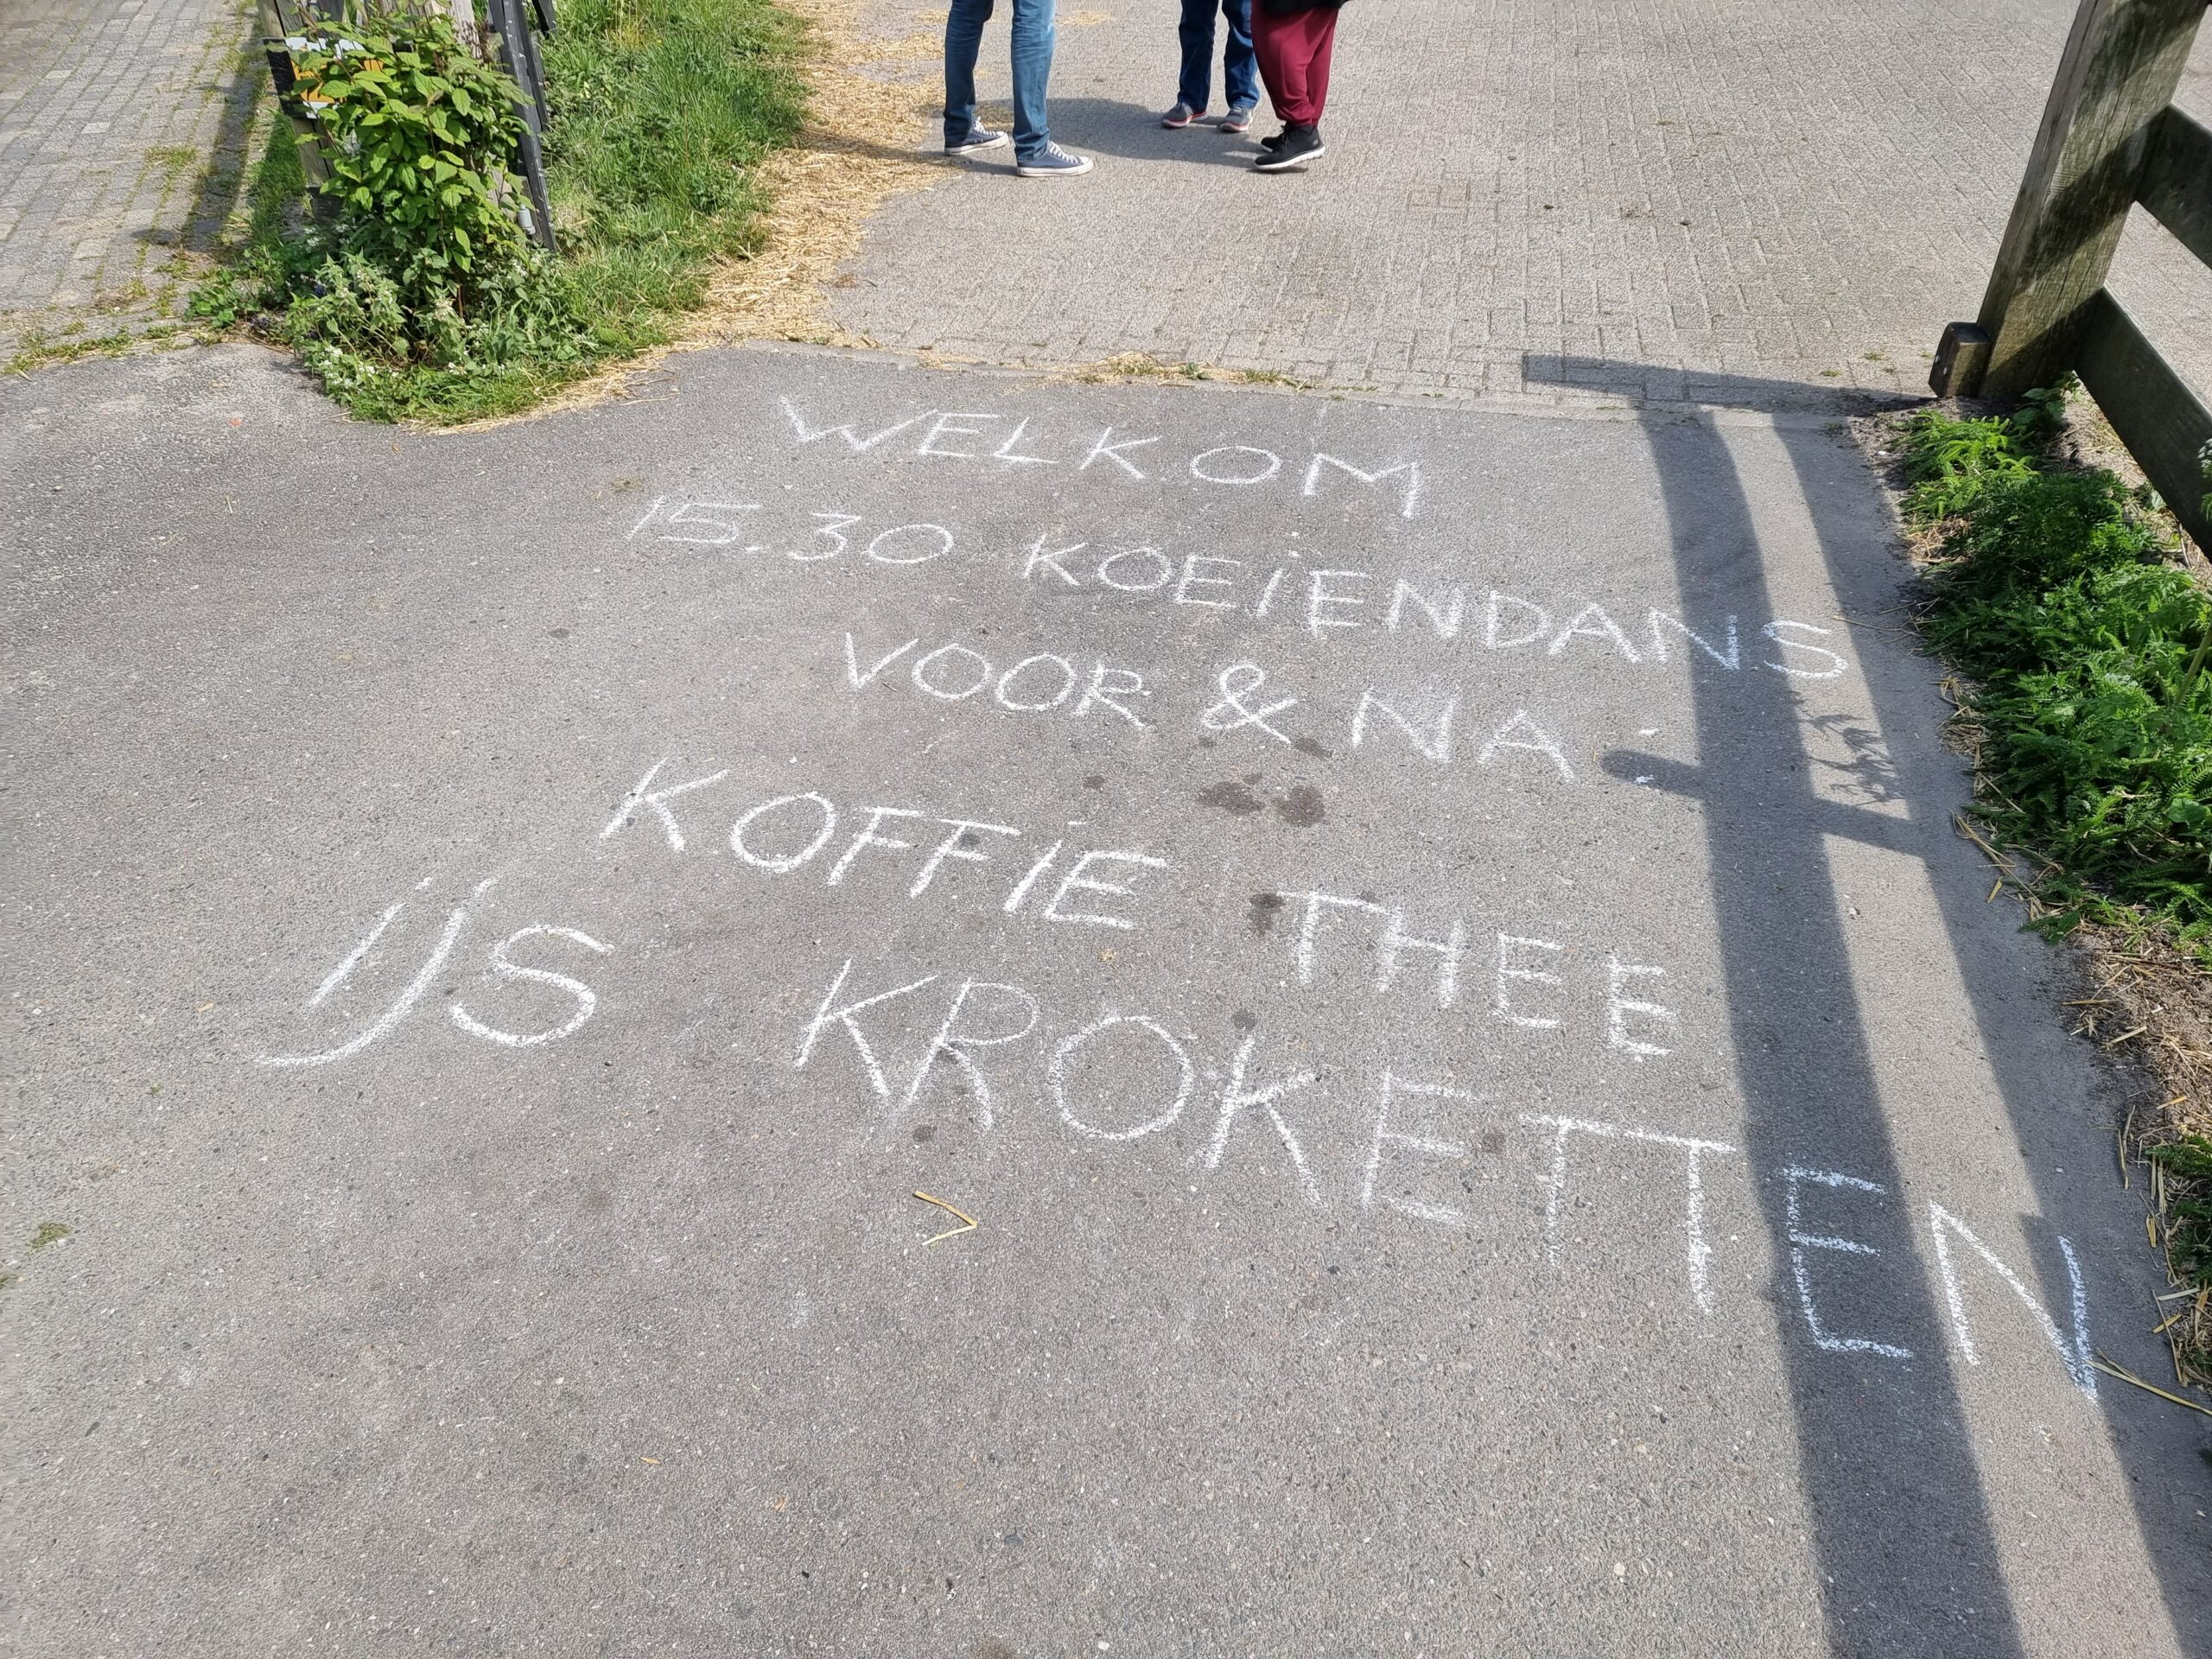 WELKOM
15.30 KOEIENDANS
VOOR & NA
KOFFIE THEE
IJS KROKETTEN